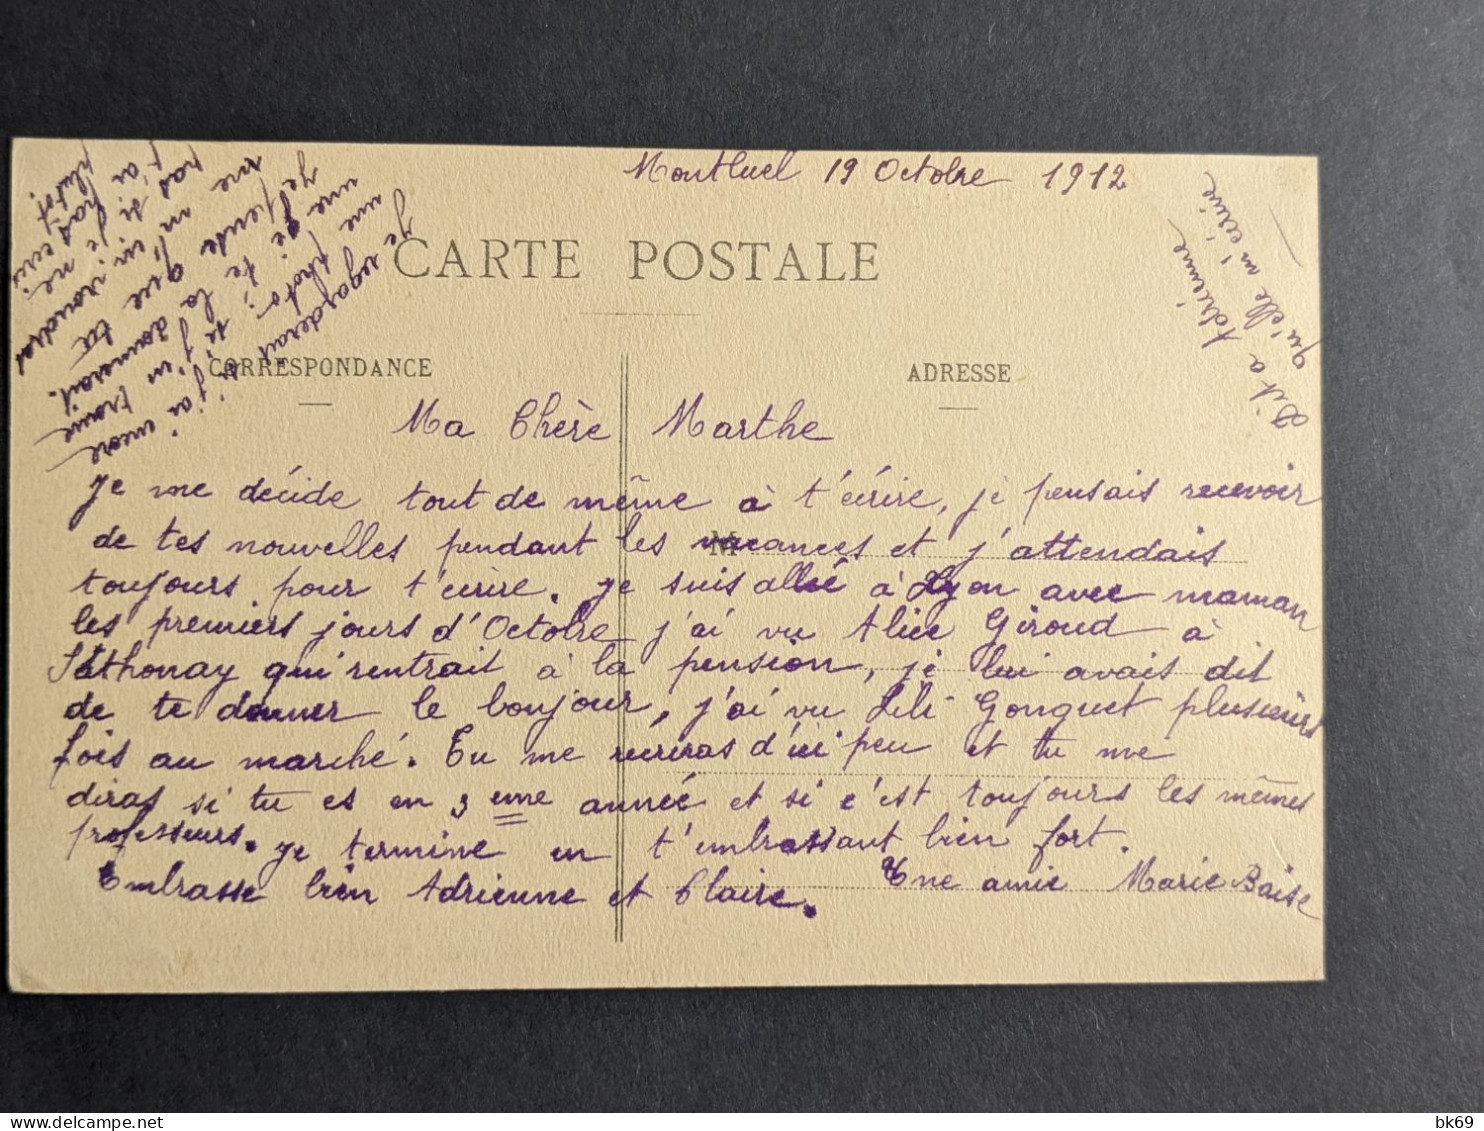 Montluel 19 Octobre 1912
CARTE POSTALE
CORRESPONDANCE
ADRESSE
Ma Chère Marthe
Je me décide tout de même à t'écrire, je pensais recevoir
de tes nouvelles pendant les vacances et j'attendais
toujours pour t'écrire. Je suis allé à Lyon avec maman
les premiers jours d'Octobre j'ai vu Alice Giroud à
Sathonay qui rentrait à la pension, je lui avais dit
de te donner le bonjour, j'ai vu Lili Gonguet plusieurs
fois au marché. Tu me récriras d'ici peu et tu me
diras si tu es en 3 eme année et si c'est toujours les mêmes
professeurs. Je termine en t'embrassant bien fort.
Embrasse bien Adrienne et Claire. Une amie Marie Baise
Je regarderais si j'ai encore
une photo; si j'en
que je te la donnerait.
je pense que tu
ne m'en voudras
pas si je ne
t'ai pas écris
plutot.
Dit a Adrienne
qu'elle m'écrive
bk69
www.delcampe.net